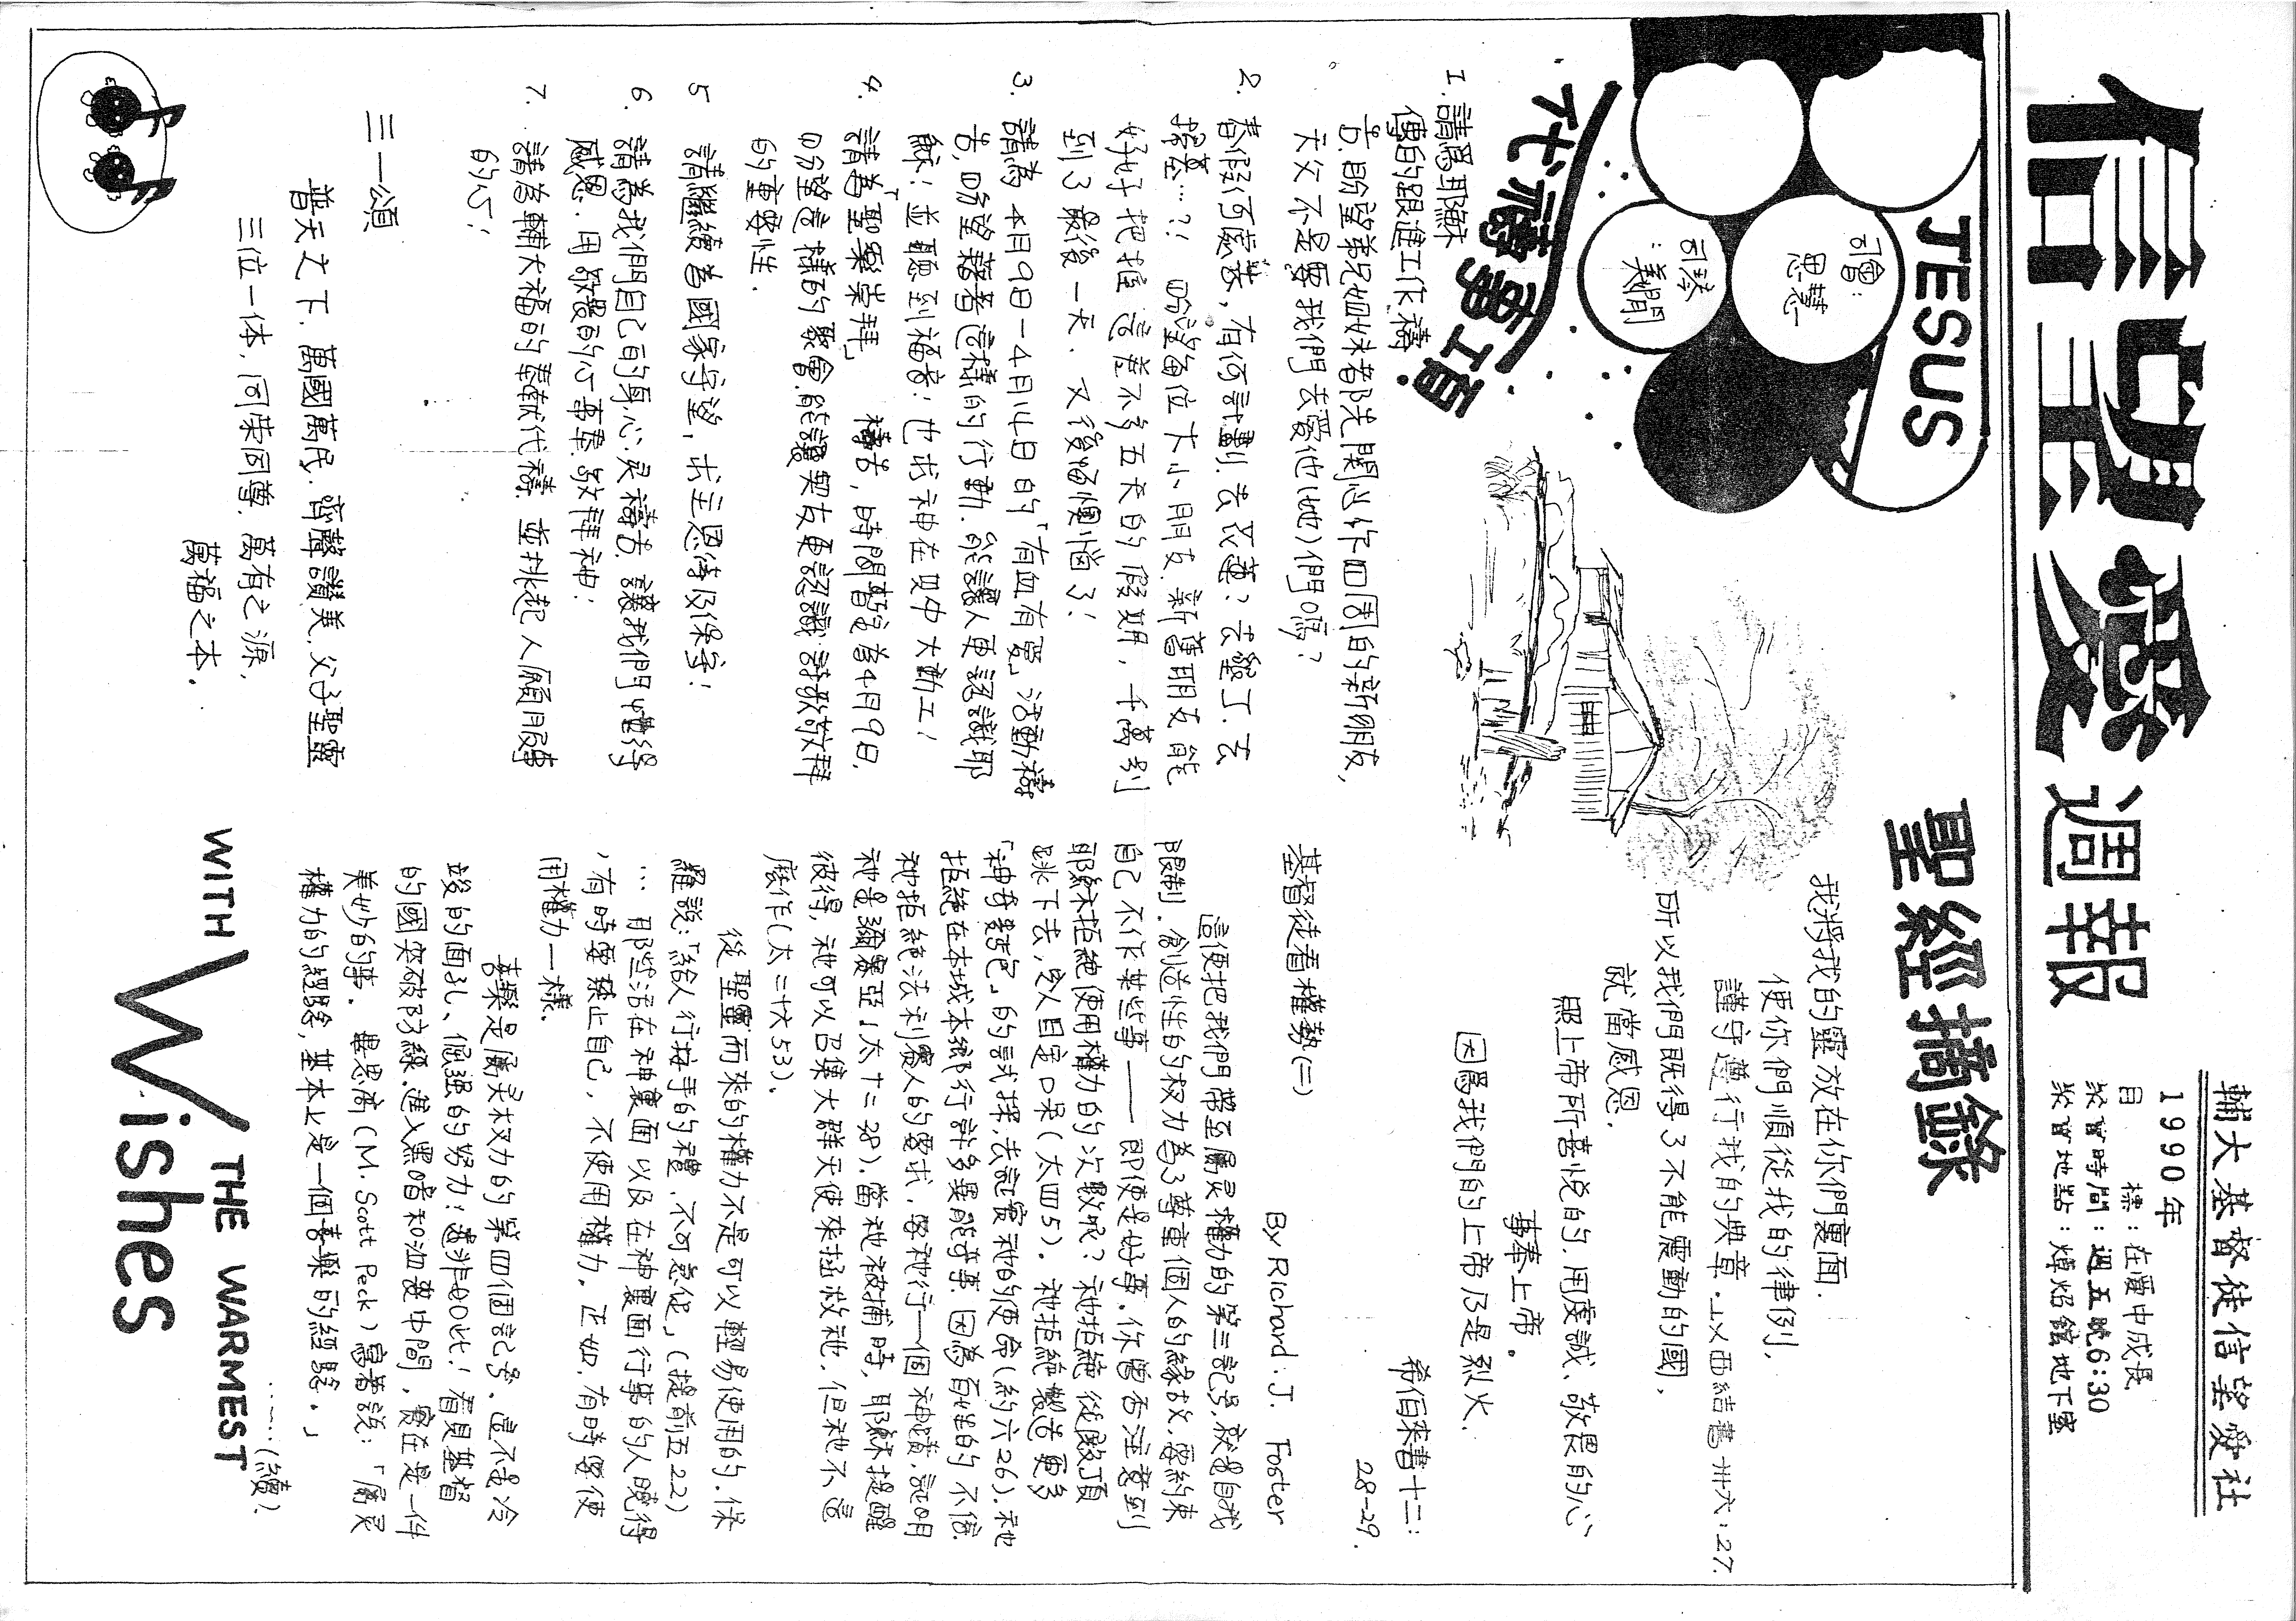 信望愛 週報
輔大基督徒信望愛社
1990年
目　標：在愛中成長
聚會時間：週五晚6:30
聚會地點：煉焰館地下室
JESUS
司會：
思慧
司琴
：義門
代禱事項
1.請為耶穌
傳的跟進工作禱
告.盼望弟兄姐妹若時关關心你四周的新朋友,
天父不是要我們去愛他(她)們嗎?
2.春假何處去,有何計劃.去墾丁.去
探墓…?! 盼望各位大小朋友.新舊朋友能
好好把握這差不多五天的假期,千萬別
到了最後一天.又後悔懊惱了!
3.請為4月9日-4月14日的「有血有愛」活動禱
告,盼望藉著這樣的行動.能讓人更認識耶
穌;並聽到福音;也求神在既中大動工!
4.請為「聖樂崇拜」禱告,時間暫訂為4月9日,
盼望這樣的聚會.能讓契友更認識詩歌敬拜
的重要性.
5 請繼續為國家守望,求主恩待及保守!
6.請為我們自己的身.心.灵禱告.讓我們懂得
感恩.用敬畏的心事奉.敬拜神!
7.請為輔大福的奉献代禱.並挑起人願服事
的心!
三一頌
普天之下.萬國萬民.齊聲讚美.父子聖靈
三位一体.同榮同尊.萬有之源.
萬福之本.
聖經摘錄
我將我的靈放在你們裏面.
使你們順從我的律例,
謹守遵行我的典章.以西結書卅六:27.
所以我們既得了不能震動的國,
就當感恩.
照上帝所喜悅的.用虔誠、敬畏的心
事奉上帝。
因為我們的上帝乃是烈火.
希伯來書十二:
28-29.
基督徒看權勢(二)
By Richard.J. Foster
這便把我們帶至屬灵權力的第三記号,就是自我
限制.創造性的权力為了尊重個人的緣故,寧約束
自己不作某些事——即使是好事.你曾否注意到
耶穌拒絕使用權力的次數呢?祂拒絕從殿頂
跳下去,令人目定口呆(太四5)。祂拒絕製造更多
「神奇麵包」的試探,去証實祂的使命(約六26).祂
拒絕在本城本鄉行許多異能奇事.因為百姓的不信.
祂拒絕法利賽人的要求,要祂行一個神蹟,証明
祂是彌賽亞(太十二38).當祂被捕時,耶穌提醒
彼得,祂可以召集大群天使來拯救祂,但祂不這
麼作(太二十六53)。
從聖靈而來的權力不是可以輕易使用的.保
羅說:「給人行按手的禮,不可急促」(提前五22)
…那些活在神裏面以及在神裏面行事的人曉得
,有時要禁止自己,不使用權力.正如,有時要使
用權力一樣.
喜樂是屬灵权力的第四個記号.這不是冷
峻的面孔、倔强的努力;遠非如此!看見基督
的國突破防線.進入黑暗和沮喪中間,實在是一件
美妙的事。畢思高(M.Scott Peck)寫著說:「屬灵
權力的經驗,基本上是一個喜樂的經驗。」
……(續).
WITH THE WARMEST
Wishes